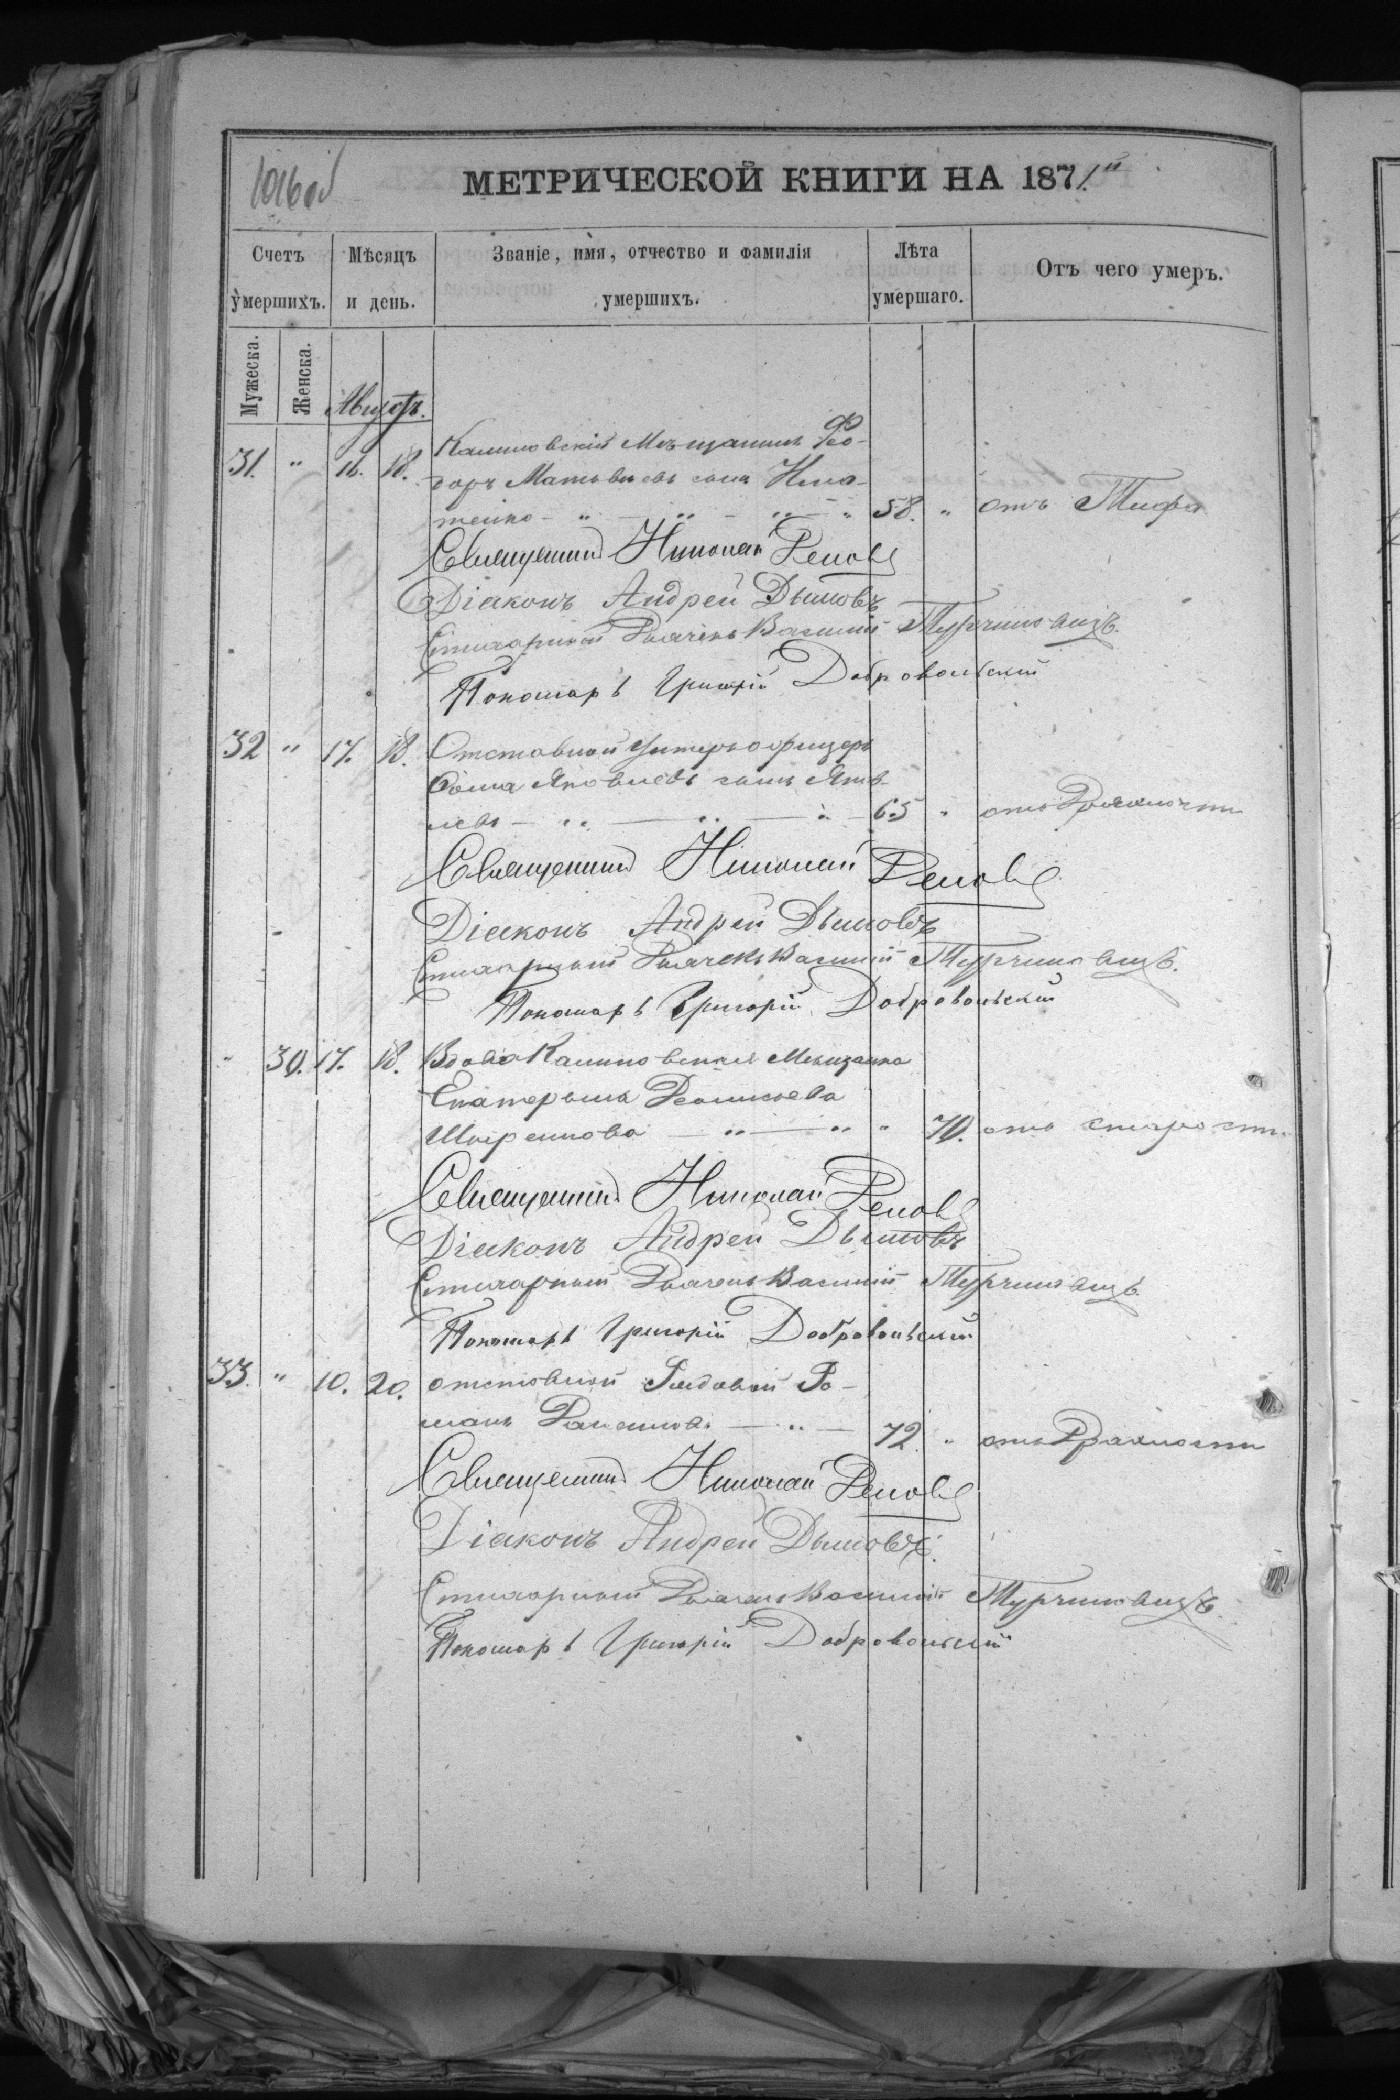 1016об
МЕТРИЧЕСКОЙ КНИГИ НА 1871й
Счетъ умершихъ.
Мѣсяцъ и день.
Званіе, имя, отчество и фамилія умершихъ.
Лѣта умершаго.
Отъ чего умеръ.
Мужеска.
Женска.
Августъ.
31. " 16. 18. Калиновскій Мѣщанинъ Фео-
доръ Матвѣевъ сынъ
58. " отъ Тифа
Священникъ Николай
Діаконъ Андрей Дымовъ
Стихарный Дьячекъ Василій
Пономарь Григорій Добровольскій
32 " 17. 18. Отставной Унтеръ офицеръ
Фома Яковлевъ сынъ Яков-
левъ 65 " отъ Дряхлости
Священникъ Николай
Діаконъ Андрей Дымовъ
Стихарный Дьячекъ Василій
Пономарь Григорій Добровольскій
" 30. 17. 18. Вдова Калиновская Мещанка
Екатерина
" 70. отъ старости.
Священникъ Николай
Діаконъ Андрей Дымовъ
Стихарный Дьячекъ Василій
Пономарь Григорій Добровольскій
33. " 10. 20. отставной Рядовой Ро-
манъ 72. " отъ Дряхлости
Священникъ Николай
Діаконъ Андрей Дымовъ.
Стихарный Дьячекъ Василій
Пономарь Григорій Добровольскій